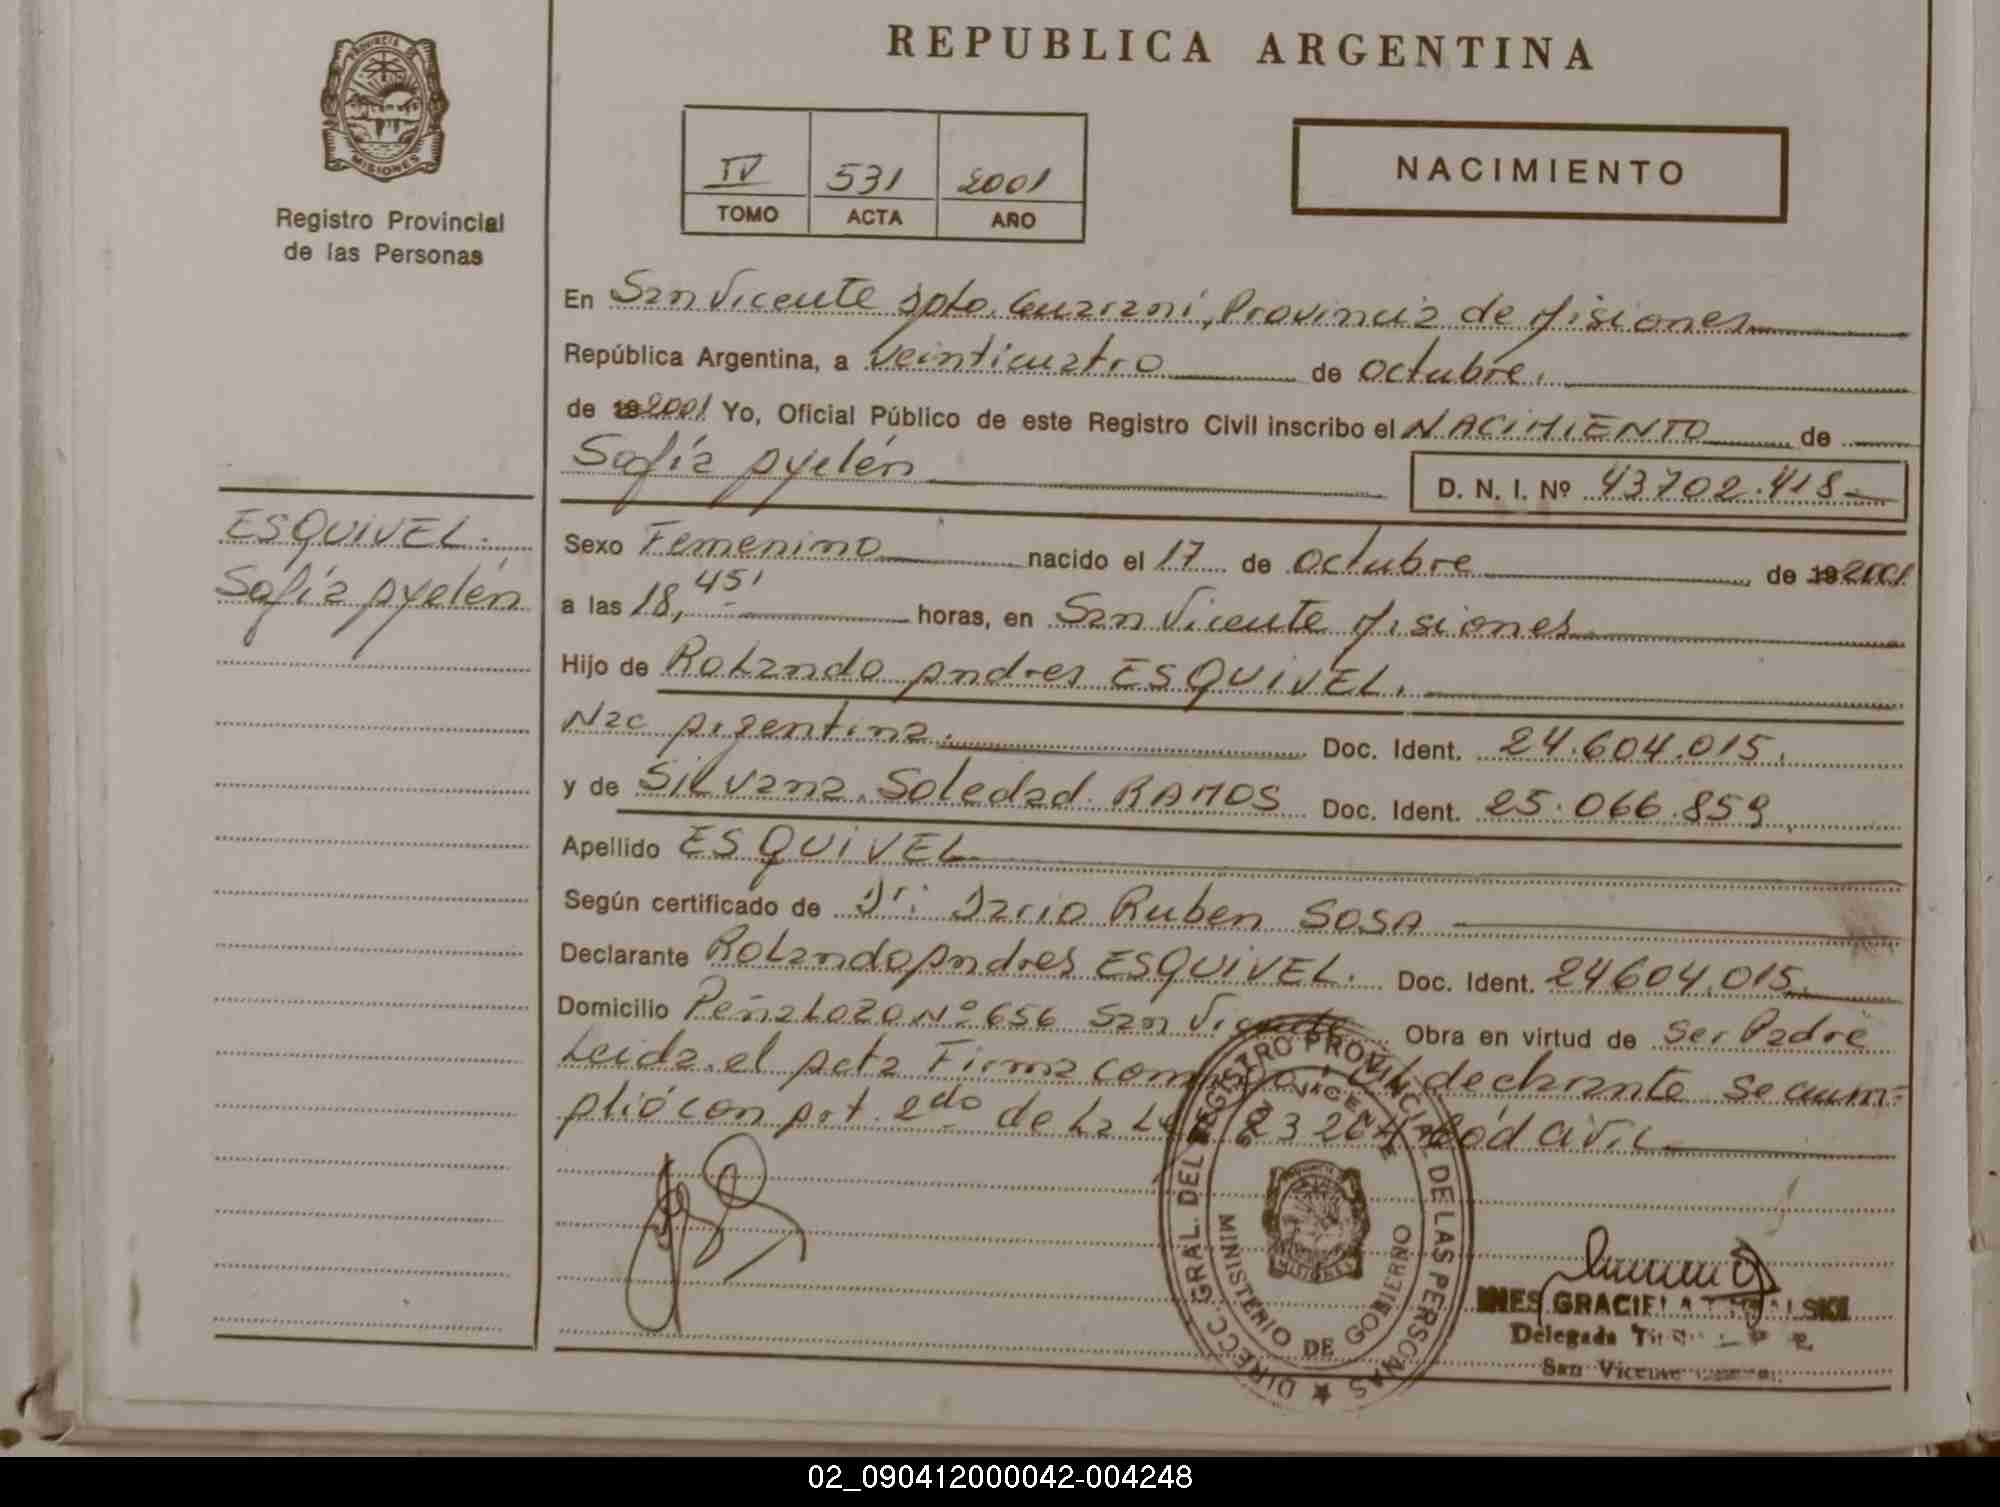 REPUBLICA ARGENTINA
PROVINCIA DE
MISIONES
Registro Provincial
de las Personas
IV 531 2001
TOMO ACTA AÑO
NACIMIENTO
En San Vicente Dpto. Guarani, Provincia de Misiones
República Argentina, a veinticuatro de octubre.
de 19 2001 Yo, Oficial Público de este Registro Civil inscribo el NACIMIENTO de
Sofía Ayelén
D. N. I. Nº 43702.418
ESQUIVEL.
Sofía Ayelén
Sexo Femenino nacido el 17 de octubre de 19 2001
a las 18,45' horas, en San Vicente Misiones
Hijo de Rolando Andres ESQUIVEL.
Nac Argentina. Doc. Ident. 24.604.015.
y de Silvana Soledad RAMOS Doc. Ident. 25.066.859
Apellido ESQUIVEL
Según certificado de Dr: Dario Ruben SOSA
Declarante Rolando Andres ESQUIVEL. Doc. Ident. 24604.015.
Domicilio Peñalozo Nº 656 San Vicente Obra en virtud de Ser Padre
Leida el Acta Firma conmigo el declarante Se cum-
plió con Art. 2do de La Ley 23264 Cód Civil
DIRECC. GRAL. DEL REGISTRO PROVINCIAL DE LAS PERSONAS
SAN VICENTE
MINISTERIO DE GOBIERNO
MISIONES
INES GRACIELA
Delegada
San Vicente
02_090412000042-004248